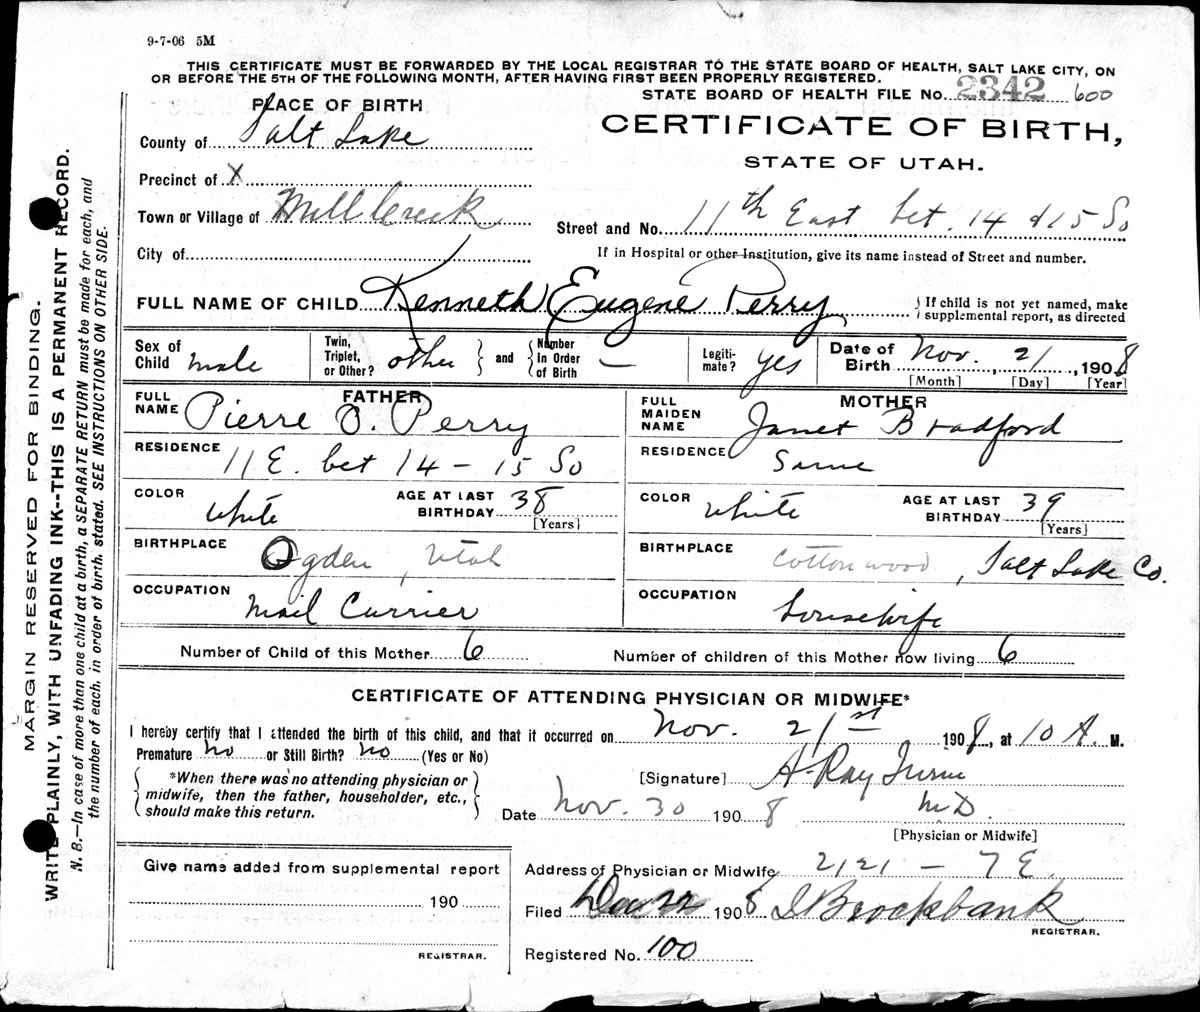 9-7-06 5M
THIS CERTIFICATE MUST BE FORWARDED BY THE LOCAL REGISTRAR TO THE STATE BOARD OF HEALTH, SALT LAKE CITY, ON
OR BEFORE THE 5TH OF THE FOLLOWING MONTH, AFTER HAVING FIRST BEEN PROPERLY REGISTERED.
STATE BOARD OF HEALTH FILE No. 2342 600
PLACE OF BIRTH
CERTIFICATE OF BIRTH,
STATE OF UTAH.
County of Salt Lake
Precinct of X
Town or Village of Mill Creek
Street and No. 11th East bet. 14 & 15 So
City of
If in Hospital or other Institution, give its name instead of Street and number.
FULL NAME OF CHILD Kenneth Eugene Perry
{ If child is not yet named, make
supplemental report, as directed
Sex of Child male
Twin, Triplet, or Other? other } and { Number In Order of Birth —
Legitimate? yes
Date of Birth Nov. 21, 1908
[Month] [Day] [Year]
FATHER
FULL NAME Pierre O. Perry
RESIDENCE 11 E. bet 14 - 15 So
COLOR white
AGE AT LAST BIRTHDAY 38
[Years]
BIRTHPLACE Ogden, Utah
OCCUPATION Mail Carrier
MOTHER
FULL MAIDEN NAME Janet Bradford
RESIDENCE Same
COLOR white
AGE AT LAST BIRTHDAY 39
[Years]
BIRTHPLACE Cottonwood, Salt Lake Co.
OCCUPATION housewife
Number of Child of this Mother 6
Number of children of this Mother now living 6
CERTIFICATE OF ATTENDING PHYSICIAN OR MIDWIFE*
I hereby certify that I attended the birth of this child, and that it occurred on Nov. 21st 1908, at 10 A. M.
Premature no or Still Birth? no (Yes or No)
{ *When there was no attending physician or
midwife, then the father, householder, etc.,
should make this return. }
[Signature] A. Ray
M.D.
Date Nov. 30 1908
[Physician or Midwife]
Give name added from supplemental report
190
REGISTRAR.
Address of Physician or Midwife 2121 - 7 E.
Filed Dec 22 1908 Brockbank
REGISTRAR.
Registered No. 100
MARGIN RESERVED FOR BINDING.
WRITE PLAINLY, WITH UNFADING INK--THIS IS A PERMANENT RECORD.
N. B.—In case of more than one child at a birth, a SEPARATE RETURN must be made for each, and
the number of each, in order of birth, stated. SEE INSTRUCTIONS ON OTHER SIDE.